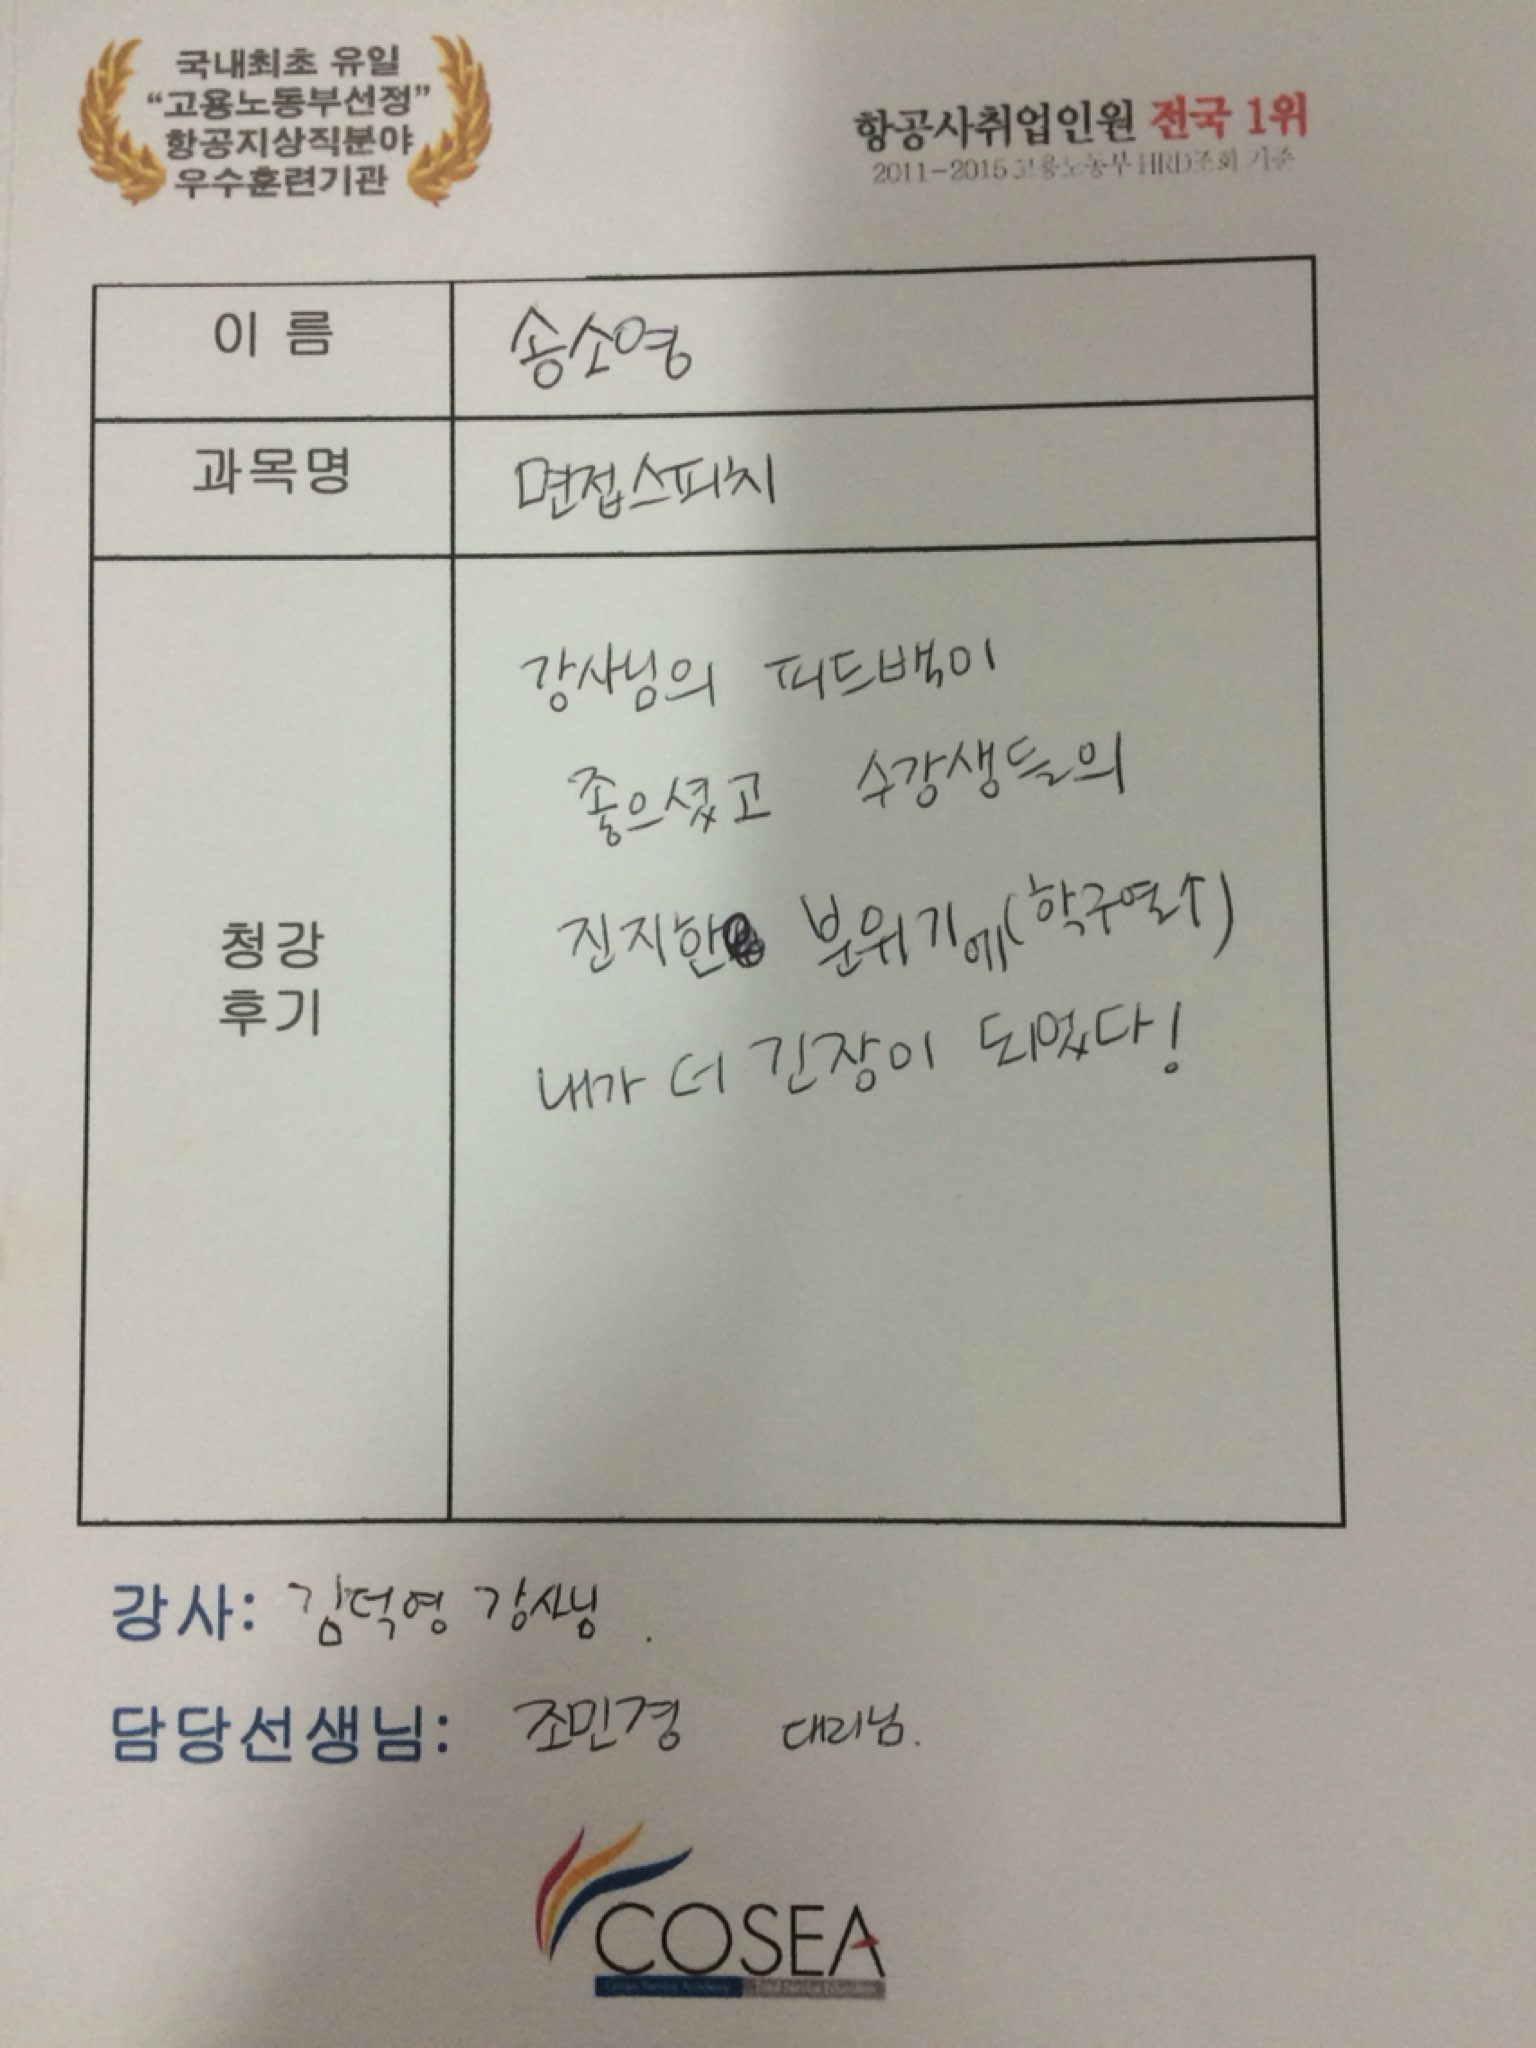 국내최초 유일
“고용노동부선정”
항공지상직분야
우수훈련기관
항공사취업인원 전국 1위
2011-2015 고용노동부 HRD조회 기준
이 름
송소영
과목명
면접스피치
청강
후기
강사님의 피드백이
좋으셨고 수강생들의
진지한 분위기에(학구열↑)
내가 더 긴장이 되었다!
강사: 김덕영 강사님.
담당선생님: 조민경 대리님.
COSEA
Total Service Education